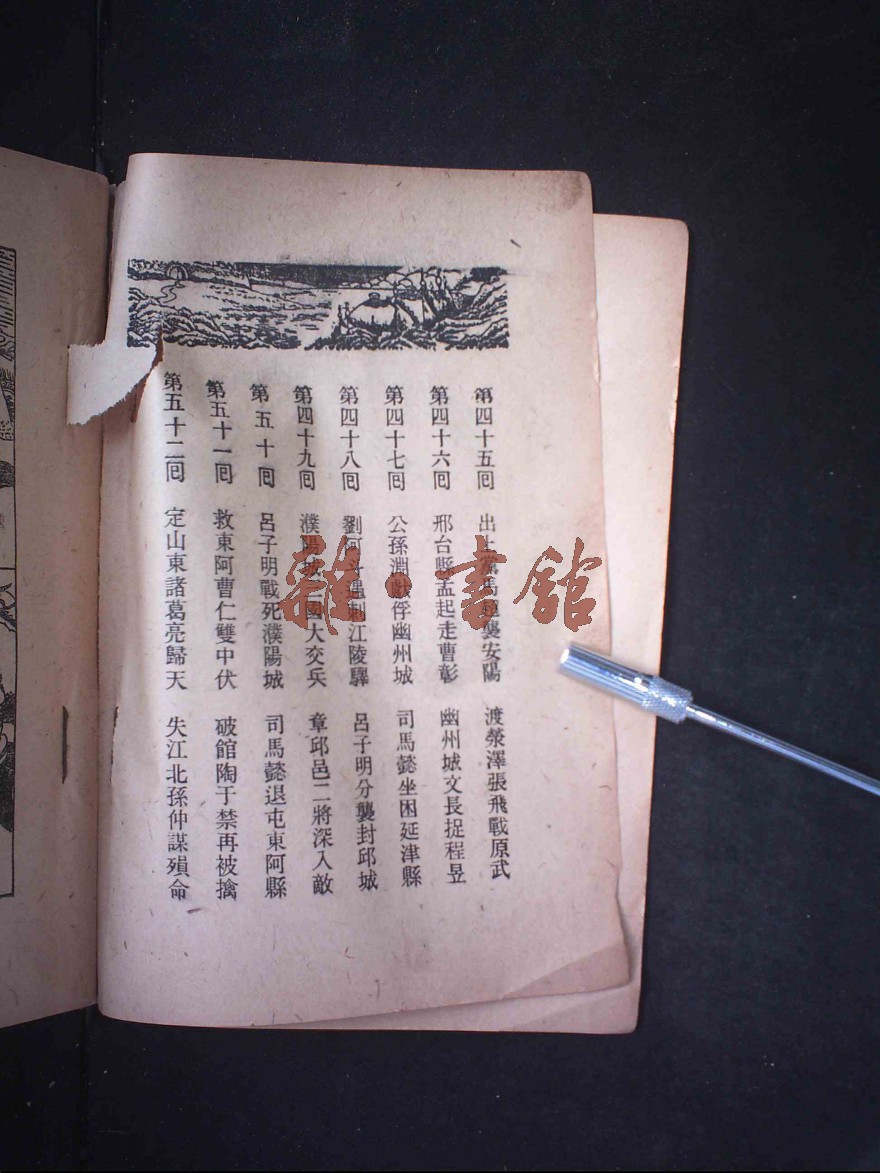 第四十五回 出上黨馬超襲安陽 渡滎澤張飛戰原武
第四十六回 邢台縣孟起走曹彰 幽州城文長捉程昱
第四十七回 公孫淵獻俘幽州城 司馬懿坐困延津縣
第四十八回 劉阿斗遇刺江陵驛 呂子明分襲封邱城
第四十九回 濮陽城 國大交兵 章邱邑二將深入敵
第五十回 呂子明戰死濮陽城 司馬懿退屯東阿縣
第五十一回 救東阿曹仁雙中伏 破館陶于禁再被擒
第五十二回 定山東諸葛亮歸天 失江北孫仲謀殞命
雜·書館